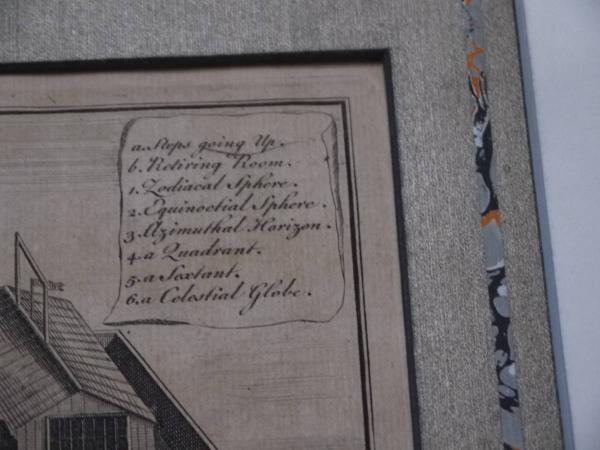 a. Steps going Up.
b. Retiring Room.
1. Zodiacal Sphere.
2. Equinoctial Sphere.
3. Azimuthal Horizon.
4. a Quadrant.
5. a Sextant.
6. a Celestial Globe.